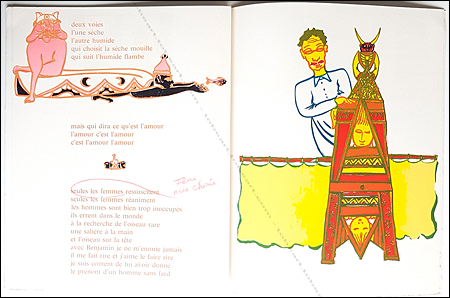 deux voies
l'une sèche
l'autre humide
qui choisit la sèche mouille
qui suit l'humide flambe
mais qui dira ce qu'est l'amour
l'amour c'est l'amour
c'est l'amour l'amour
seules les femmes ressuscitent
seules les femmes réaniment
les hommes sont bien trop inoccupés
ils errent dans le monde
à la recherche de l'oiseau rare
une salière à la main
et l'oiseau sur la tête
avec Benjamin je ne m'ennuie jamais
il me fait rire et j'aime le faire rire
je suis content de lui avoir donné
le prénom d'un homme sans fard